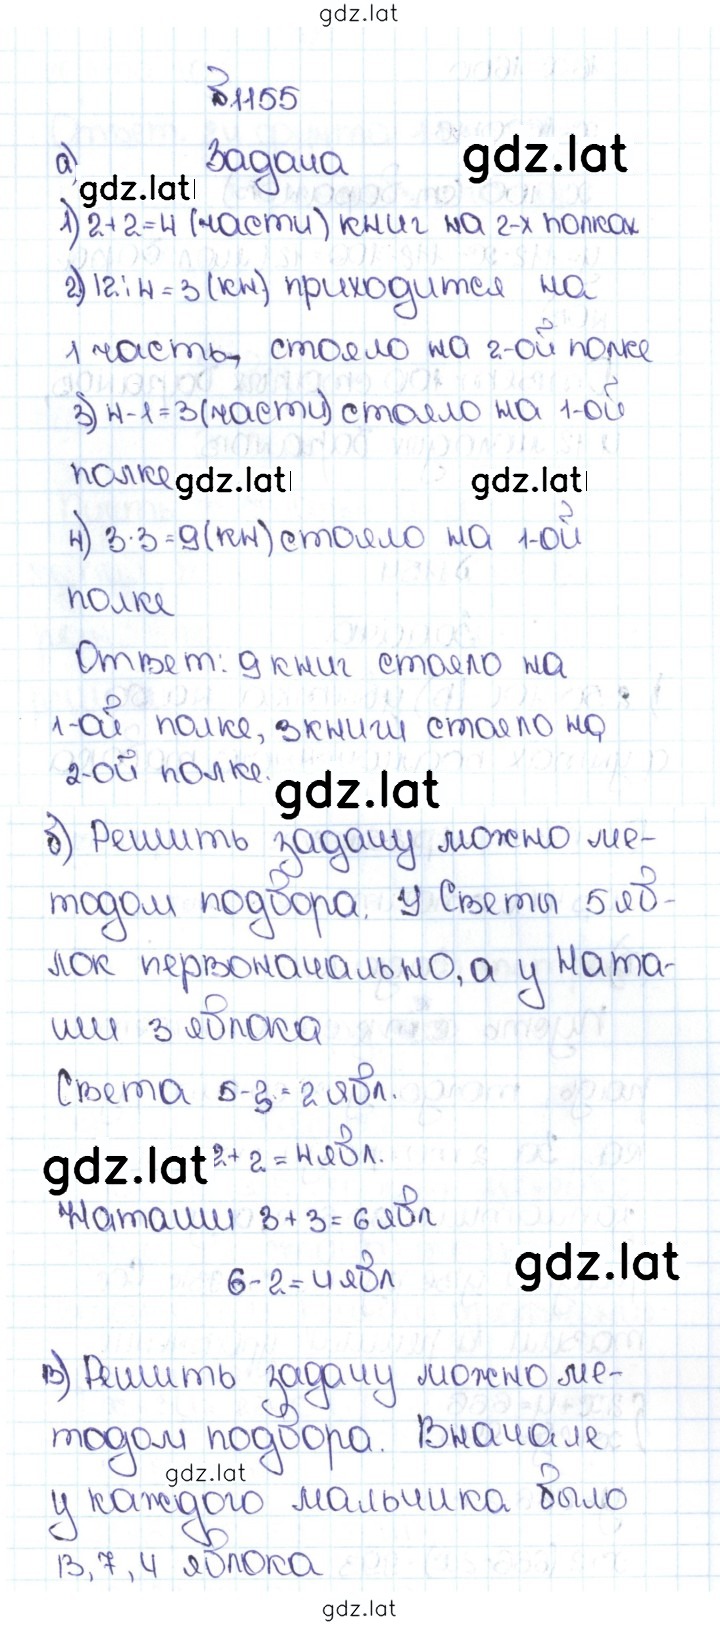 gdz.lat
№1155
а) Задача gdz.lat
gdz.lat
1) 2+2=4 (части) книг на 2-х полках
2) 12:4=3 (кн) приходится на
1 часть, стояло на 2-ой полке
3) 4-1=3 (части) стояло на 1-ой
полке gdz.lat gdz.lat
4) 3·3=9 (кн) стояло на 1-ой
полке
Ответ: 9 книг стояло на
1-ой полке, 3 книги стояло на
2-ой полке. gdz.lat
б) Решить задачу можно ме-
тодом подбора. У Светы 5 яб-
лок первоначально, а у Ната-
ши 3 яблока
Света 5-3=2 ябл.
gdz.lat 2+2=4 ябл.
Наташи 3+3=6 ябл
6-2=4 ябл gdz.lat
в) Решить задачу можно ме-
тодом подбора. Вначале
gdz.lat
у каждого мальчика было
13, 7, 4 яблока
gdz.lat